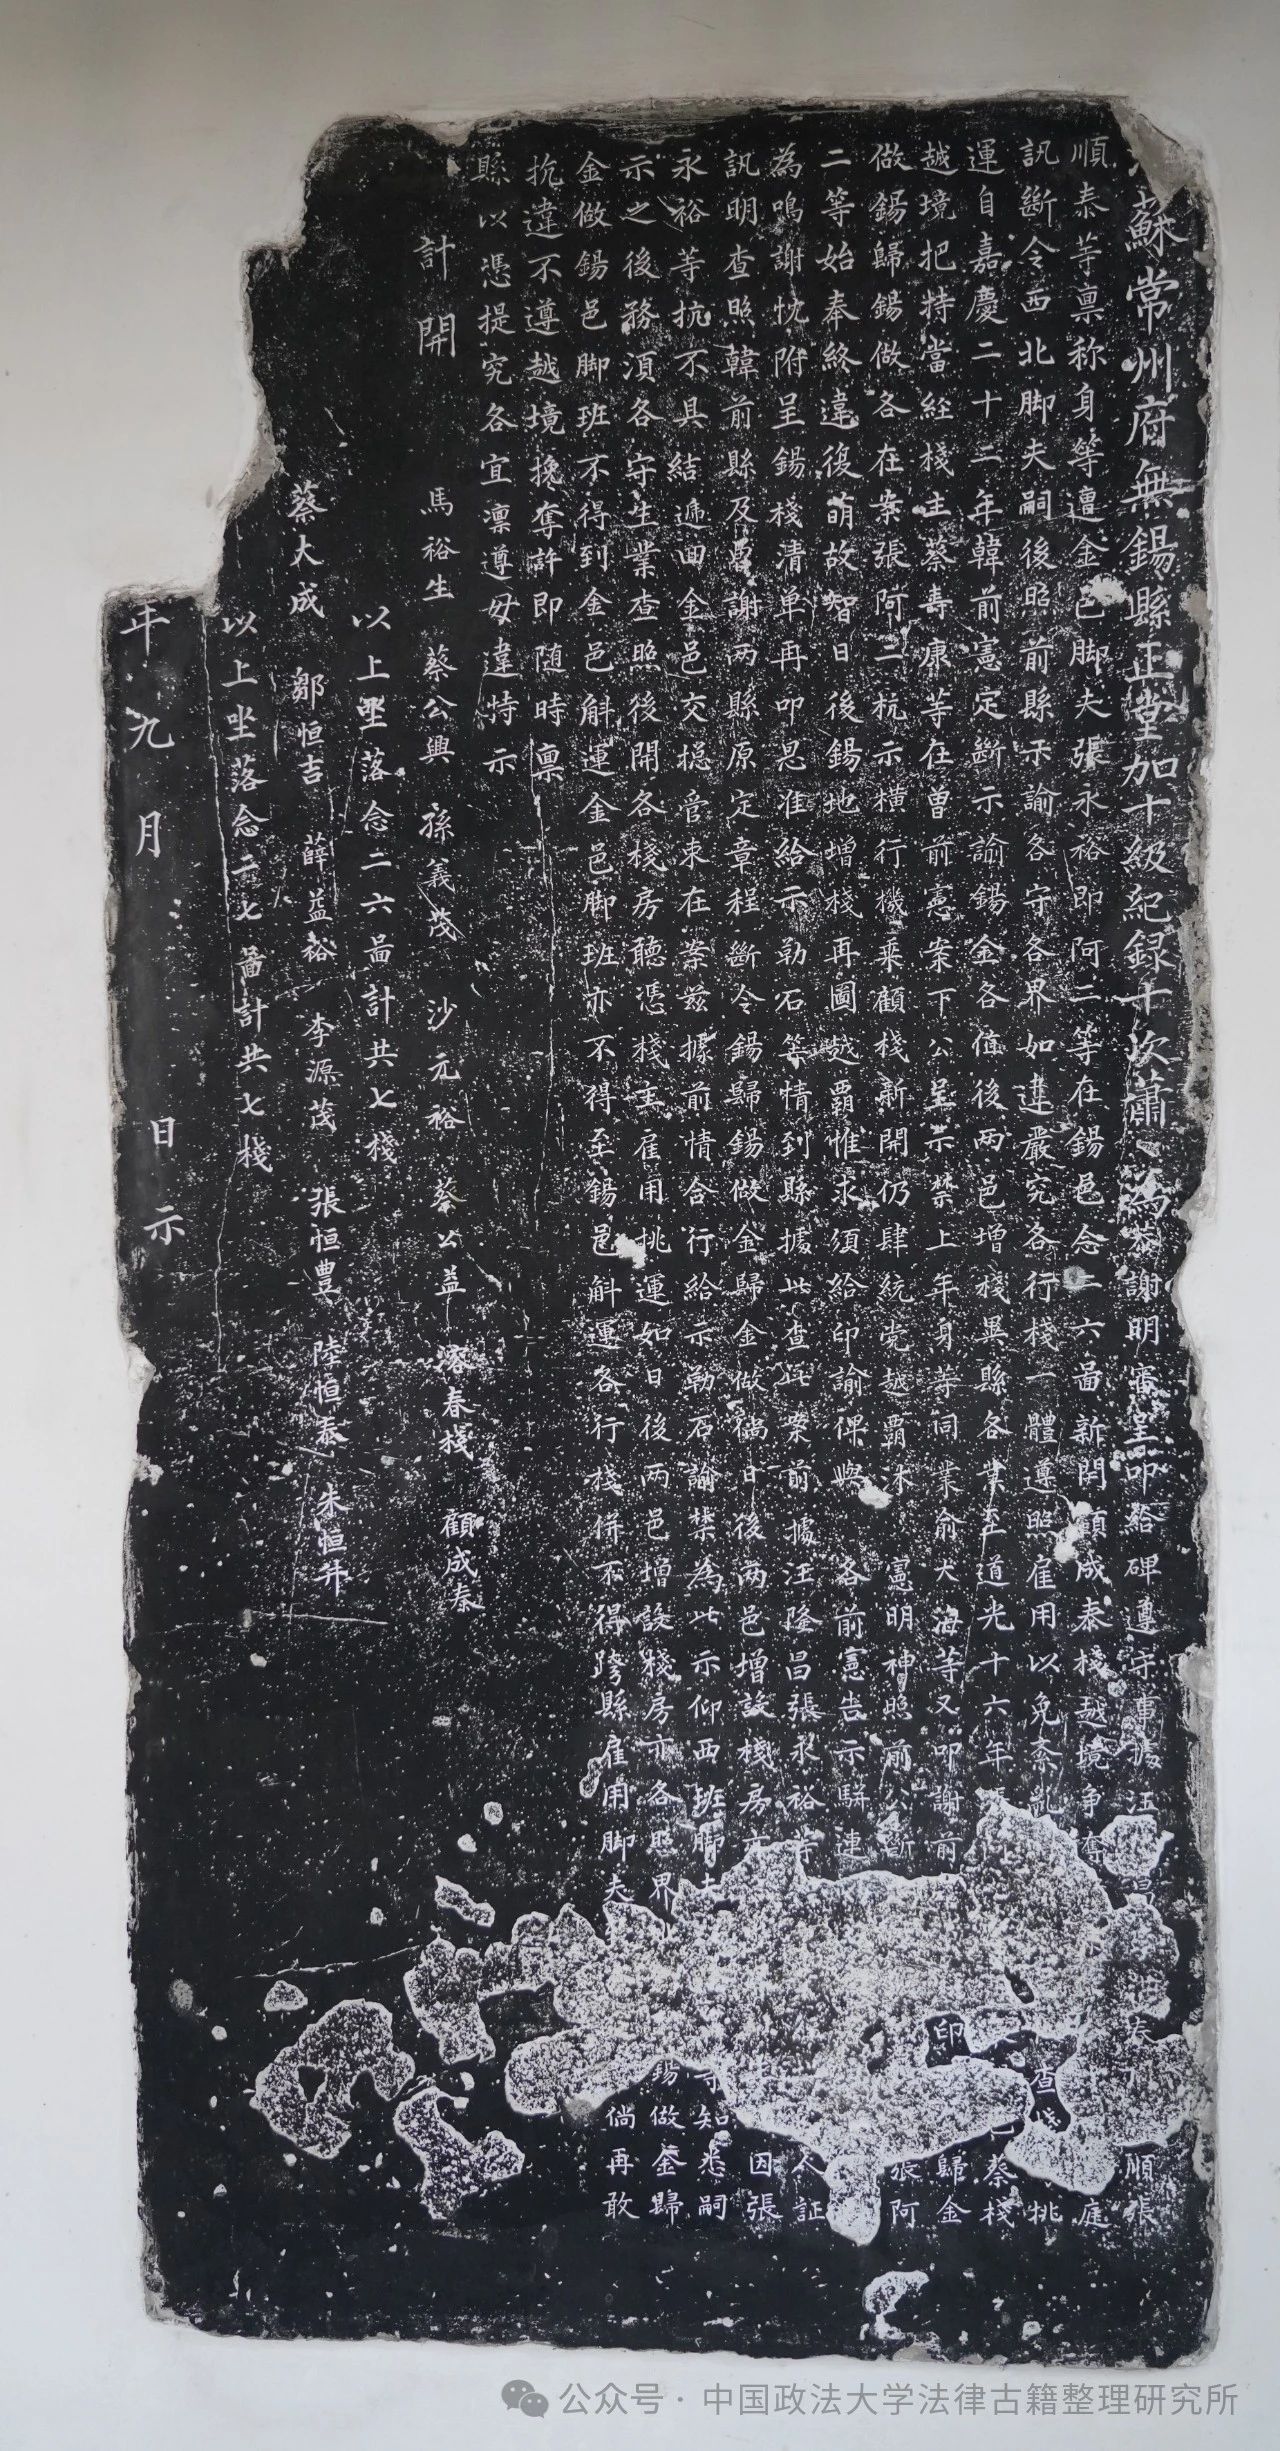 蘇常州府無錫縣正堂加十級紀録十次蕭為恭謝明審呈叩給碑遵守事 汪 順張
順泰等禀称身等遭金邑脚夫張永裕即阿三等在錫邑念二六啚新開顧成泰棧越境争 庭
訊斷令西北脚夫嗣後昭前縣示諭各守各界如違嚴究各行棧一體遵照雇用以免紊亂 查 挑
運自嘉慶二十二年韓前憲定斷示諭錫金各值後两邑增棧異縣各業至道光十六年 蔡棧
越境把持當経棧主蔡壽康等在曽前憲案下公呈示禁上年身等同業俞大海等又叩謝前 印 歸金
做錫歸錫做各在案張阿二杭示橫行機乗顧棧新開仍肆統党越覇沐 憲明神照前公斷 張阿
二等始奉終違後萌故智日後錫地增棧再圖越覇惟求須給印諭俾與 各前憲告示駢連
為鳴謝忱附呈錫棧清单再叩恩准給示勒石等情到縣據此查此案前據汪隆昌張永裕等 人証
訊明查照韓前縣及曽謝两縣原定章程斷令錫歸錫做金歸金做倘日後两邑增設棧房亦 因張
永裕等抗不具結逓回金邑交摠管束在案兹據前情合行給示勒石諭禁為此示仰西班脚夫 知悉嗣
示之後務湏各守生業查照後開各棧房聽憑棧主雇用挑運如日後两邑增設棧房亦各照界 錫做金歸
金做錫邑脚班不得到金邑斛運金邑脚班亦不得至錫邑斛運各行棧併不得跨縣雇用脚夫 倘再敢
抗違不遵越境攙奪許即随時禀
縣以憑提究各宜凛遵毋違特示
計開
馬裕生 蔡公興 孫義茂 沙元裕 蔡公益 濬春棧 顧成泰
以上坐落念二六啚計共七棧
蔡大成 鄒恒吉 薛益裕 李源茂 張恒豊 陸恒泰 朱恒升
以上坐落念二七啚計共七棧
年九月 日示
公众号·中国政法大学法律古籍整理研究所